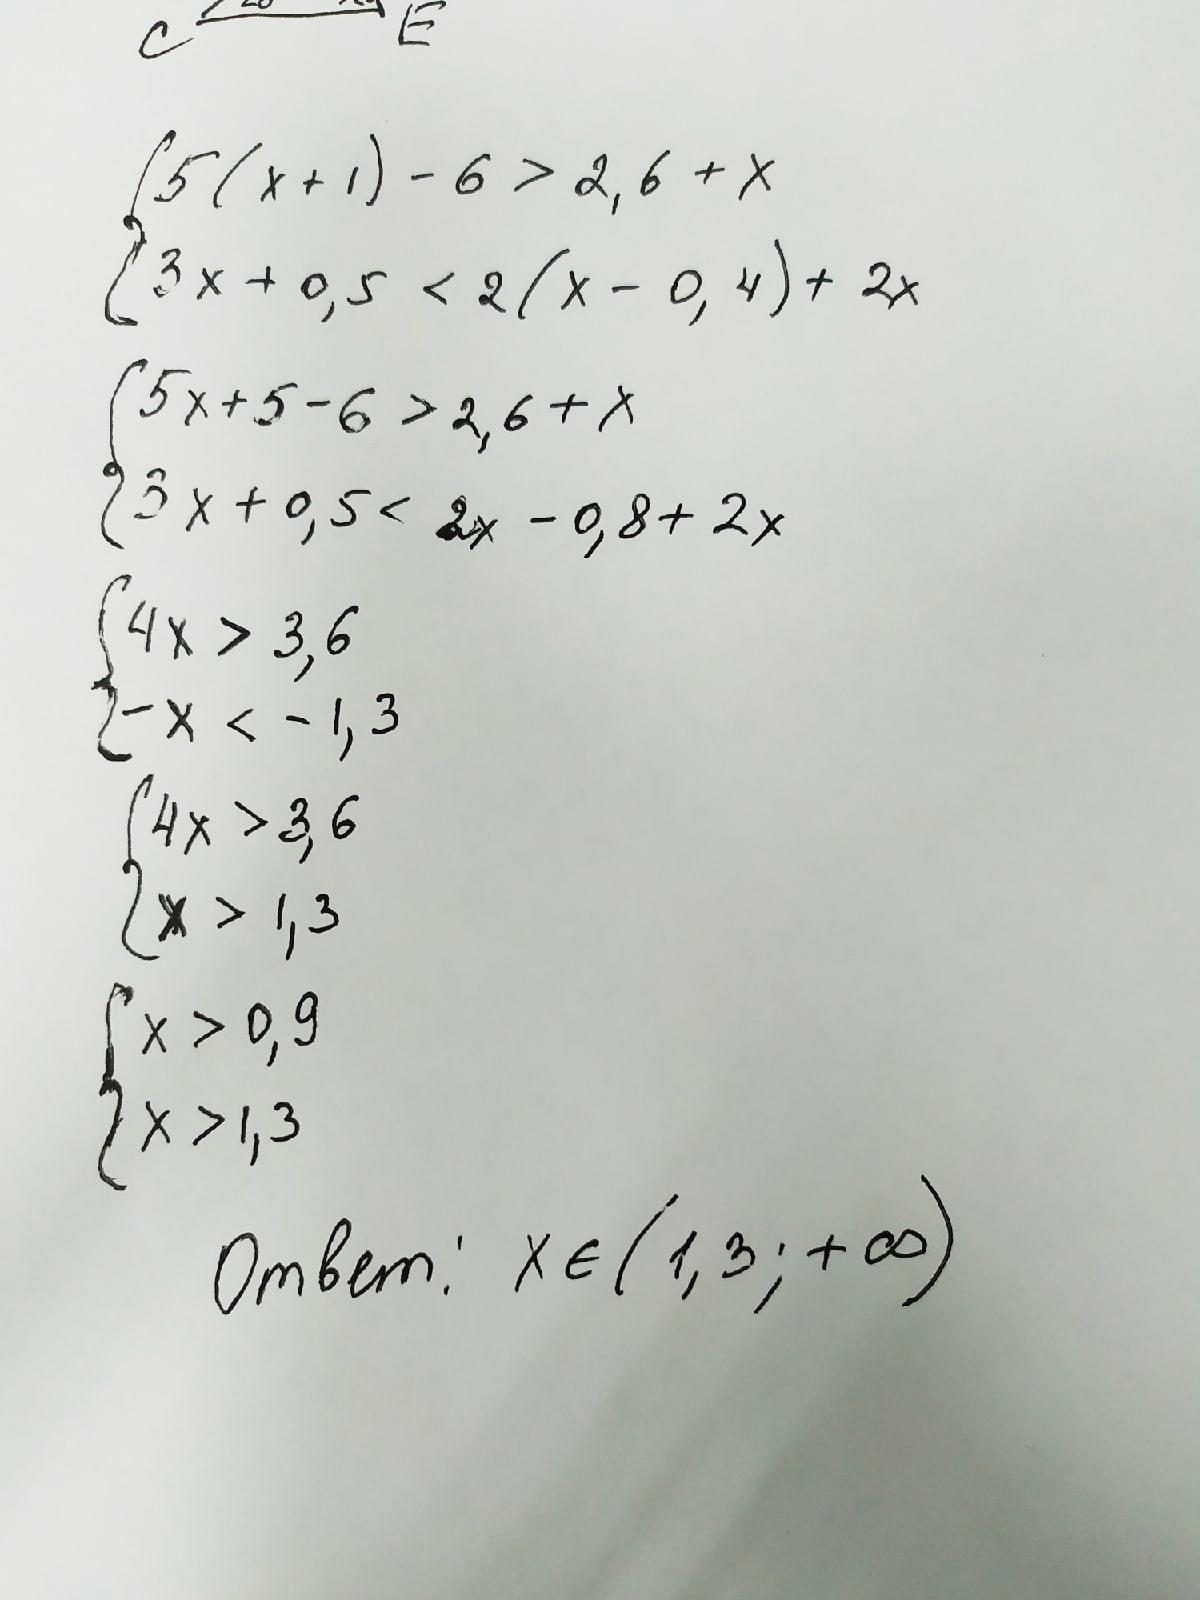 C E
5(x+1)-6>2,6+x
3x+0,5<2(x-0,4)+2x
5x+5-6>2,6+x
3x+0,5<2x-0,8+2x
4x>3,6
-x<-1,3
4x>3,6
x>1,3
x>0,9
x>1,3
Ответ: x∈(1,3;+∞)